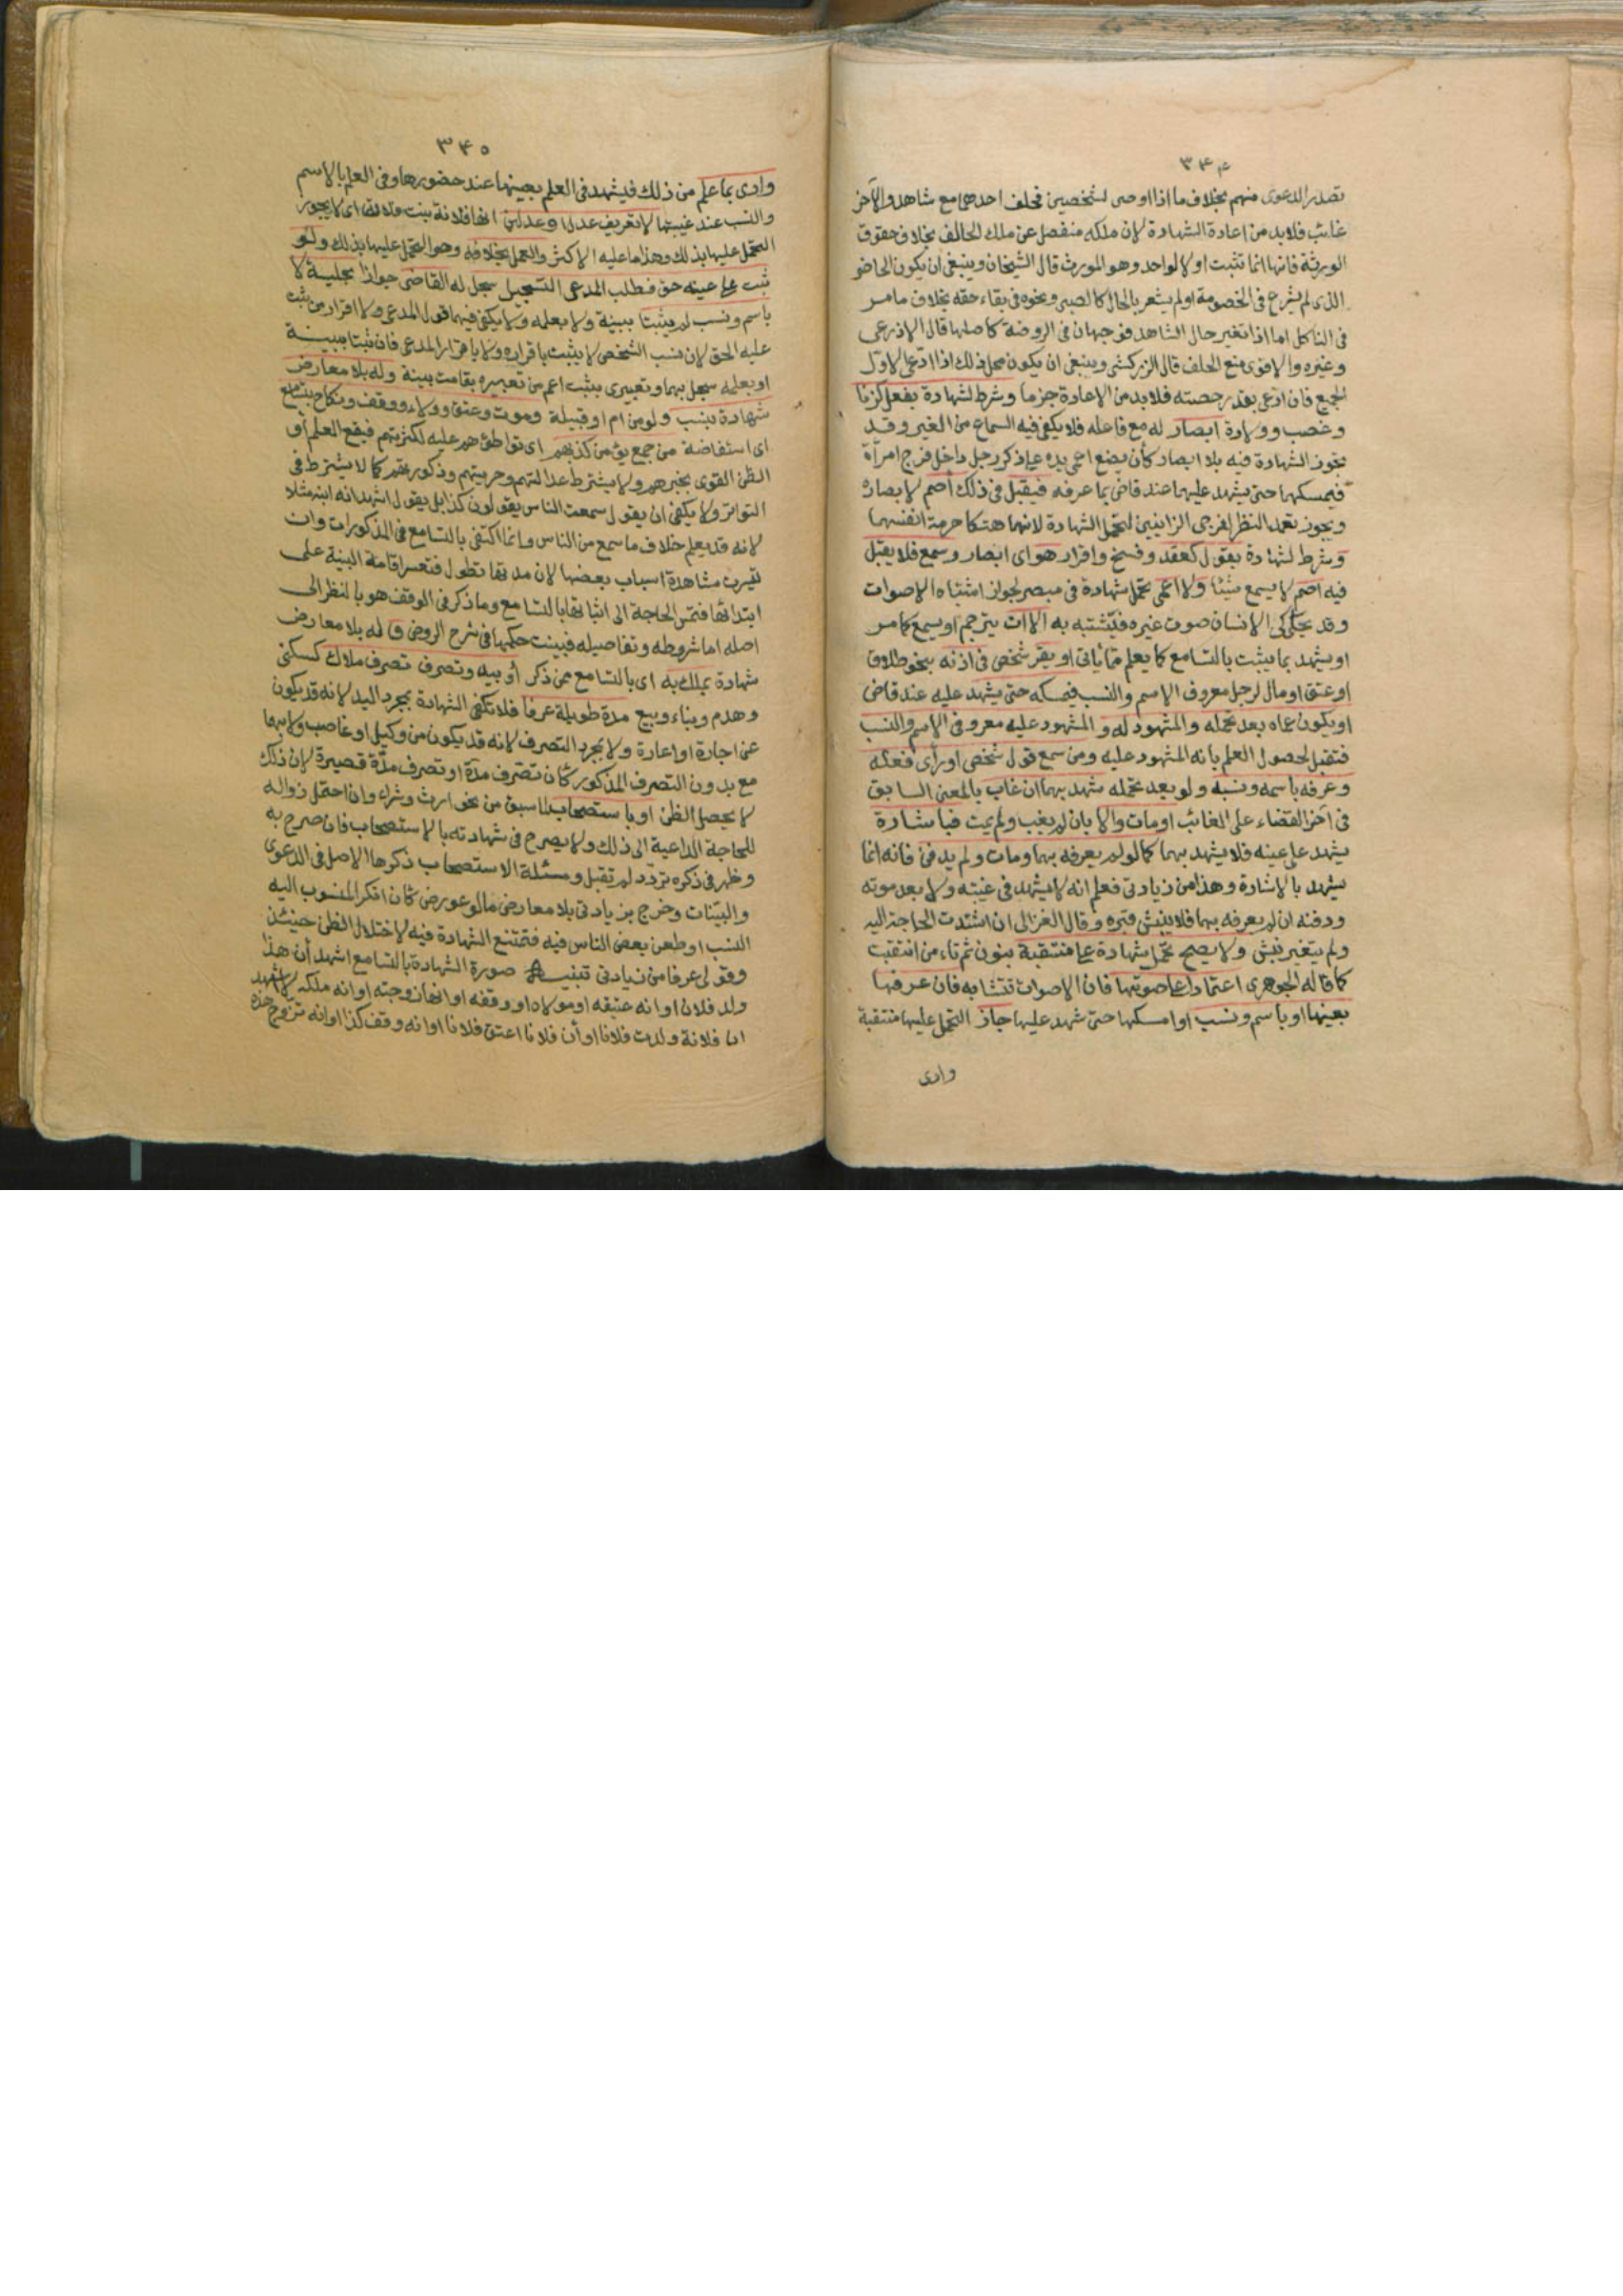 ٣٤٤
تصدر الدعوى منهم بخلاف ما اذا اوصى لشخصين فحلف احدهما مع شاهد والآخر
غائب فلا بد من اعادة الشهادة لان ملكه منفصل عن ملك الحالف بخلاف حقوق
الورثة فانها انما تثبت اولا لواحد وهو المورث قال الشيخان وينبغى ان يكون الحاضر
الذى لم يشرع فى الخصومة او لم يشعر بالحال كالصبى ونحوه فى بقاء حقه بخلاف ما مر
فى الناكل اما اذا تغير حال الشاهد فوجهان فى الروضة كاصلها قال الاذرعى
وغيره والاقوى منع الحلف قال الزركشى وينبغى ان يكون محل ذلك اذا ادعى الاول
الجميع فان ادعى بقدر حصته فلا بد من الاعادة جزما وشرط لشهادة بفعل كزنا
وغصب وولادة ابصار له مع فاعله فلا يكفى فيه السماع من الغير وقد
تجوز الشهادة فيه بلا ابصار كأن يضع اعمى يده على ذكر رجل داخل فرج امرأة
فيمسكهما حتى يشهد عليهما عند قاض بما عرفه فيقبل فى ذلك أصم لابصاره
ويجوز تعمد النظر لفرجى الزانيين لتحمل الشهادة لانهما هتكا حرمة انفسهما
وشرط لشهادة بقول كعقد وفسخ واقرار هو اى ابصار وسمع فلا يقبل
فيه اصم لا يسمع شيئا ولا اعمى تحمل شهادة فى مبصر لجواز اشتباه الاصوات
وقد يحكى الانسان صوت غيره فيشتبه به الا ان يترجم او يسمع كما مر
او يشهد بما يثبت بالتسامع كما يعلم مما يأتى او يقر شخص فى اذنه بنحو طلاق
او عتق او مال لرجل معروف الاسم والنسب فيمسكه حتى يشهد عليه عند قاض
او يكون عماه بعد تحمله والمشهود له والمشهود عليه معروفى الاسم والنسب
فتقبل لحصول العلم بانه المشهود عليه ومن سمع قول شخص او رأى فعله
وعرفه باسمه ونسبه ولو بعد تحمله شهد بهما ان غاب بالمعنى السابق
فى آخر القضاء على الغائب او مات والا بان لم يغب ولم يمت فباشارة
يشهد على عينه فلا يشهد بهما كما لو لم يعرفه بهما ومات ولم يدفن فانه انما
يشهد بالاشارة وهذا من زيادتى فعلم انه لا يشهد فى غيبته ولا بعد موته
ودفنه ان لم يعرفه بهما فلا ينبش قبره وقال الغزالى ان اشتدت الحاجة اليه
ولم يتغير نبش ولا يصح تحمل شهادة على منتقبة بنون ثم تاء من انتقبت
كما قاله الجوهرى اعتمادا على صوتها فان الاصوات تتشابه فان عرفها
بعينها او باسم ونسب او امسكها حتى شهد عليها جاز التحمل عليها منتقبة
وادى
٣٤٥
وادى بما علم من ذلك فيشهد فى العلم بعينها عند حضورها وفى العلم بالاسم
والنسب عند غيبتها لا بتعريف عدل او عدلين انها فلانة بنت فلان اى لا يجوز
التحمل عليها بذلك وهذا ما عليه الاكثر والعمل بخلافه وهو التحمل عليها بذلك ولو
ثبت على عينه حق فطلب المدعى التسجيل سجل له القاضى جوازا بحلية لا
باسم ونسب لم يثبتا ببينة ولا بعلمه ولا يكفى فيهما قول المدعى ولا اقرار من ثبت
عليه الحق لان نسب الشخص لا يثبت باقراره ولا باقرار المدعى فان ثبتا ببينة
او بعلمه سجل بهما وتعبيرى بيثبت اعم من تعبيره بقامت بينة وله بلا معارض
شهادة بنسب ولو من ام او قبيلة وموت وعتق وولاء ووقف ونكاح بتسامع
اى استفاضة من جمع يؤمن كذبهم اى تواطئهم عليه لكثرتهم فيقع العلم او
الظن القوى بخبرهم ولا يشترط عدالتهم وحريتهم وذكورتهم كما لا يشترط فى
التواتر ولا يكفى ان يقول سمعت الناس يقولون كذا بل يقول اشهد انه ابنه مثلا
لانه قد يعلم خلاف ما سمع من الناس وانما اكتفى بالتسامع فى المذكورات وان
تيسرت مشاهدة اسباب بعضها لان مدتها تطول فتعسر اقامة البينة على
ابتدائها فتمس الحاجة الى اثباتها بالتسامع وما ذكر فى الوقف هو بالنظر الى
اصله اما شروطه وتفاصيله فبينت حكمها فى شرح الروض وله بلا معارض
شهادة بملك به اى بالتسامع ممن ذكر أو بيد وتصرف تصرف ملاك كسكنى
وهدم وبناء وبيع مدة طويلة عرفا فلا تكفى الشهادة بمجرد اليد لانه قد يكون
عن اجارة او اعارة ولا بمجرد التصرف لانه قد يكون من وكيل او غاصب ولا بهما
مع بدون التصرف المذكور كأن تصرف مدة او تصرف مدة قصيرة لان ذلك
لا يحصل الظن او باستصحاب لما سبق من نحو ارث وشراء وان احتمل زواله
للحاجة الداعية الى ذلك ولا يصرح فى شهادته بالاستصحاب فان صرح به
وظهر فى ذكره تردد لم تقبل ومسئلة الاستصحاب ذكرها الاصل فى الدعوى
والبينات وخرج بزيادتى بلا معارض ما لو عورض كأن انكر المنسوب اليه
النسب او طعن بعض الناس فيه فتمتنع الشهادة فيه لاختلال الظن حينئذ
وقولى عرفا من زيادتى تنبيه صورة الشهادة بالتسامع اشهد أن هذا
ولد فلان او انه عتيقه او مولاه او وقفه او انها زوجته او انه ملكه لا اشهد
ان فلانة ولدت فلانا او أن فلانا اعتق فلانا او انه وقف كذا او انه تزوج هذه